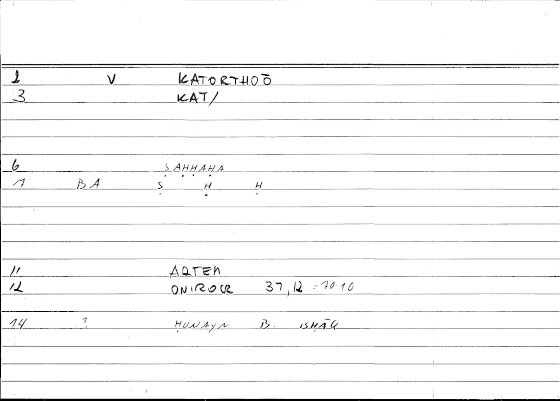 1 V KATORTHOŌ
3 KAT/
6 ṢAḤḤAḤA
1 BA Ṣ Ḥ Ḥ
11 ARTEM
12 ONIROCR 37,12 : 70.10
14 ? ḤUNAYN B. ISḤĀQ